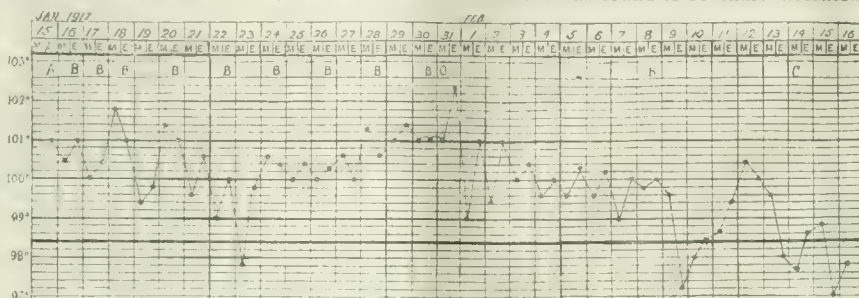 JAN 1917 FEB
15 16 17 18 19 20 21 22 23 24 25 26 27 28 29 30 31 1 2 3 4 5 6 7 8 9 10 11 12 13 14 15 16
M E M E M E M E M E M E M E M E M E M E M E M E M E M E M E M E M E M E M E M E M E M E M E M E M E M E M E M E M E M E M E M E M E
103°
A B B B B B B B B B O C
102°
101°
100°
99°
98°
97°